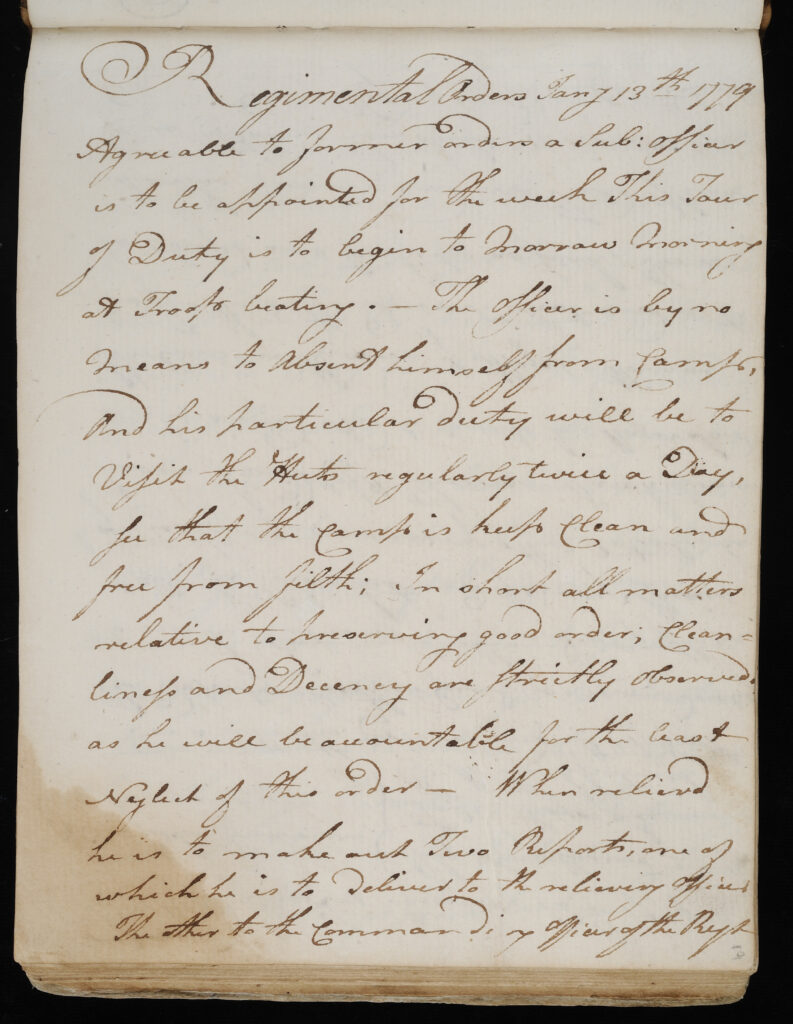 Regimental Orders Jany 13th 1779
Agreeable to former orders a Sub: officer
is to be appointed for the week This Tour
of Duty is to begin to Morrow Morning
at Troop beating. — The officer is by no
means to Absent himself from Camp,
And his particular duty will be to
Visit the Huts regularly twice a Day,
see that the Camp is kept Clean and
free from filth; In short all matters
relative to preserving good order, Clean=
liness and Decency are strictly observed
as he will be accountable for the least
Neglect of this order — When relievd
he is to make out Two Reports, one of
which he is to deliver to the relieving officer
The other to the Commanding officer of the Regt